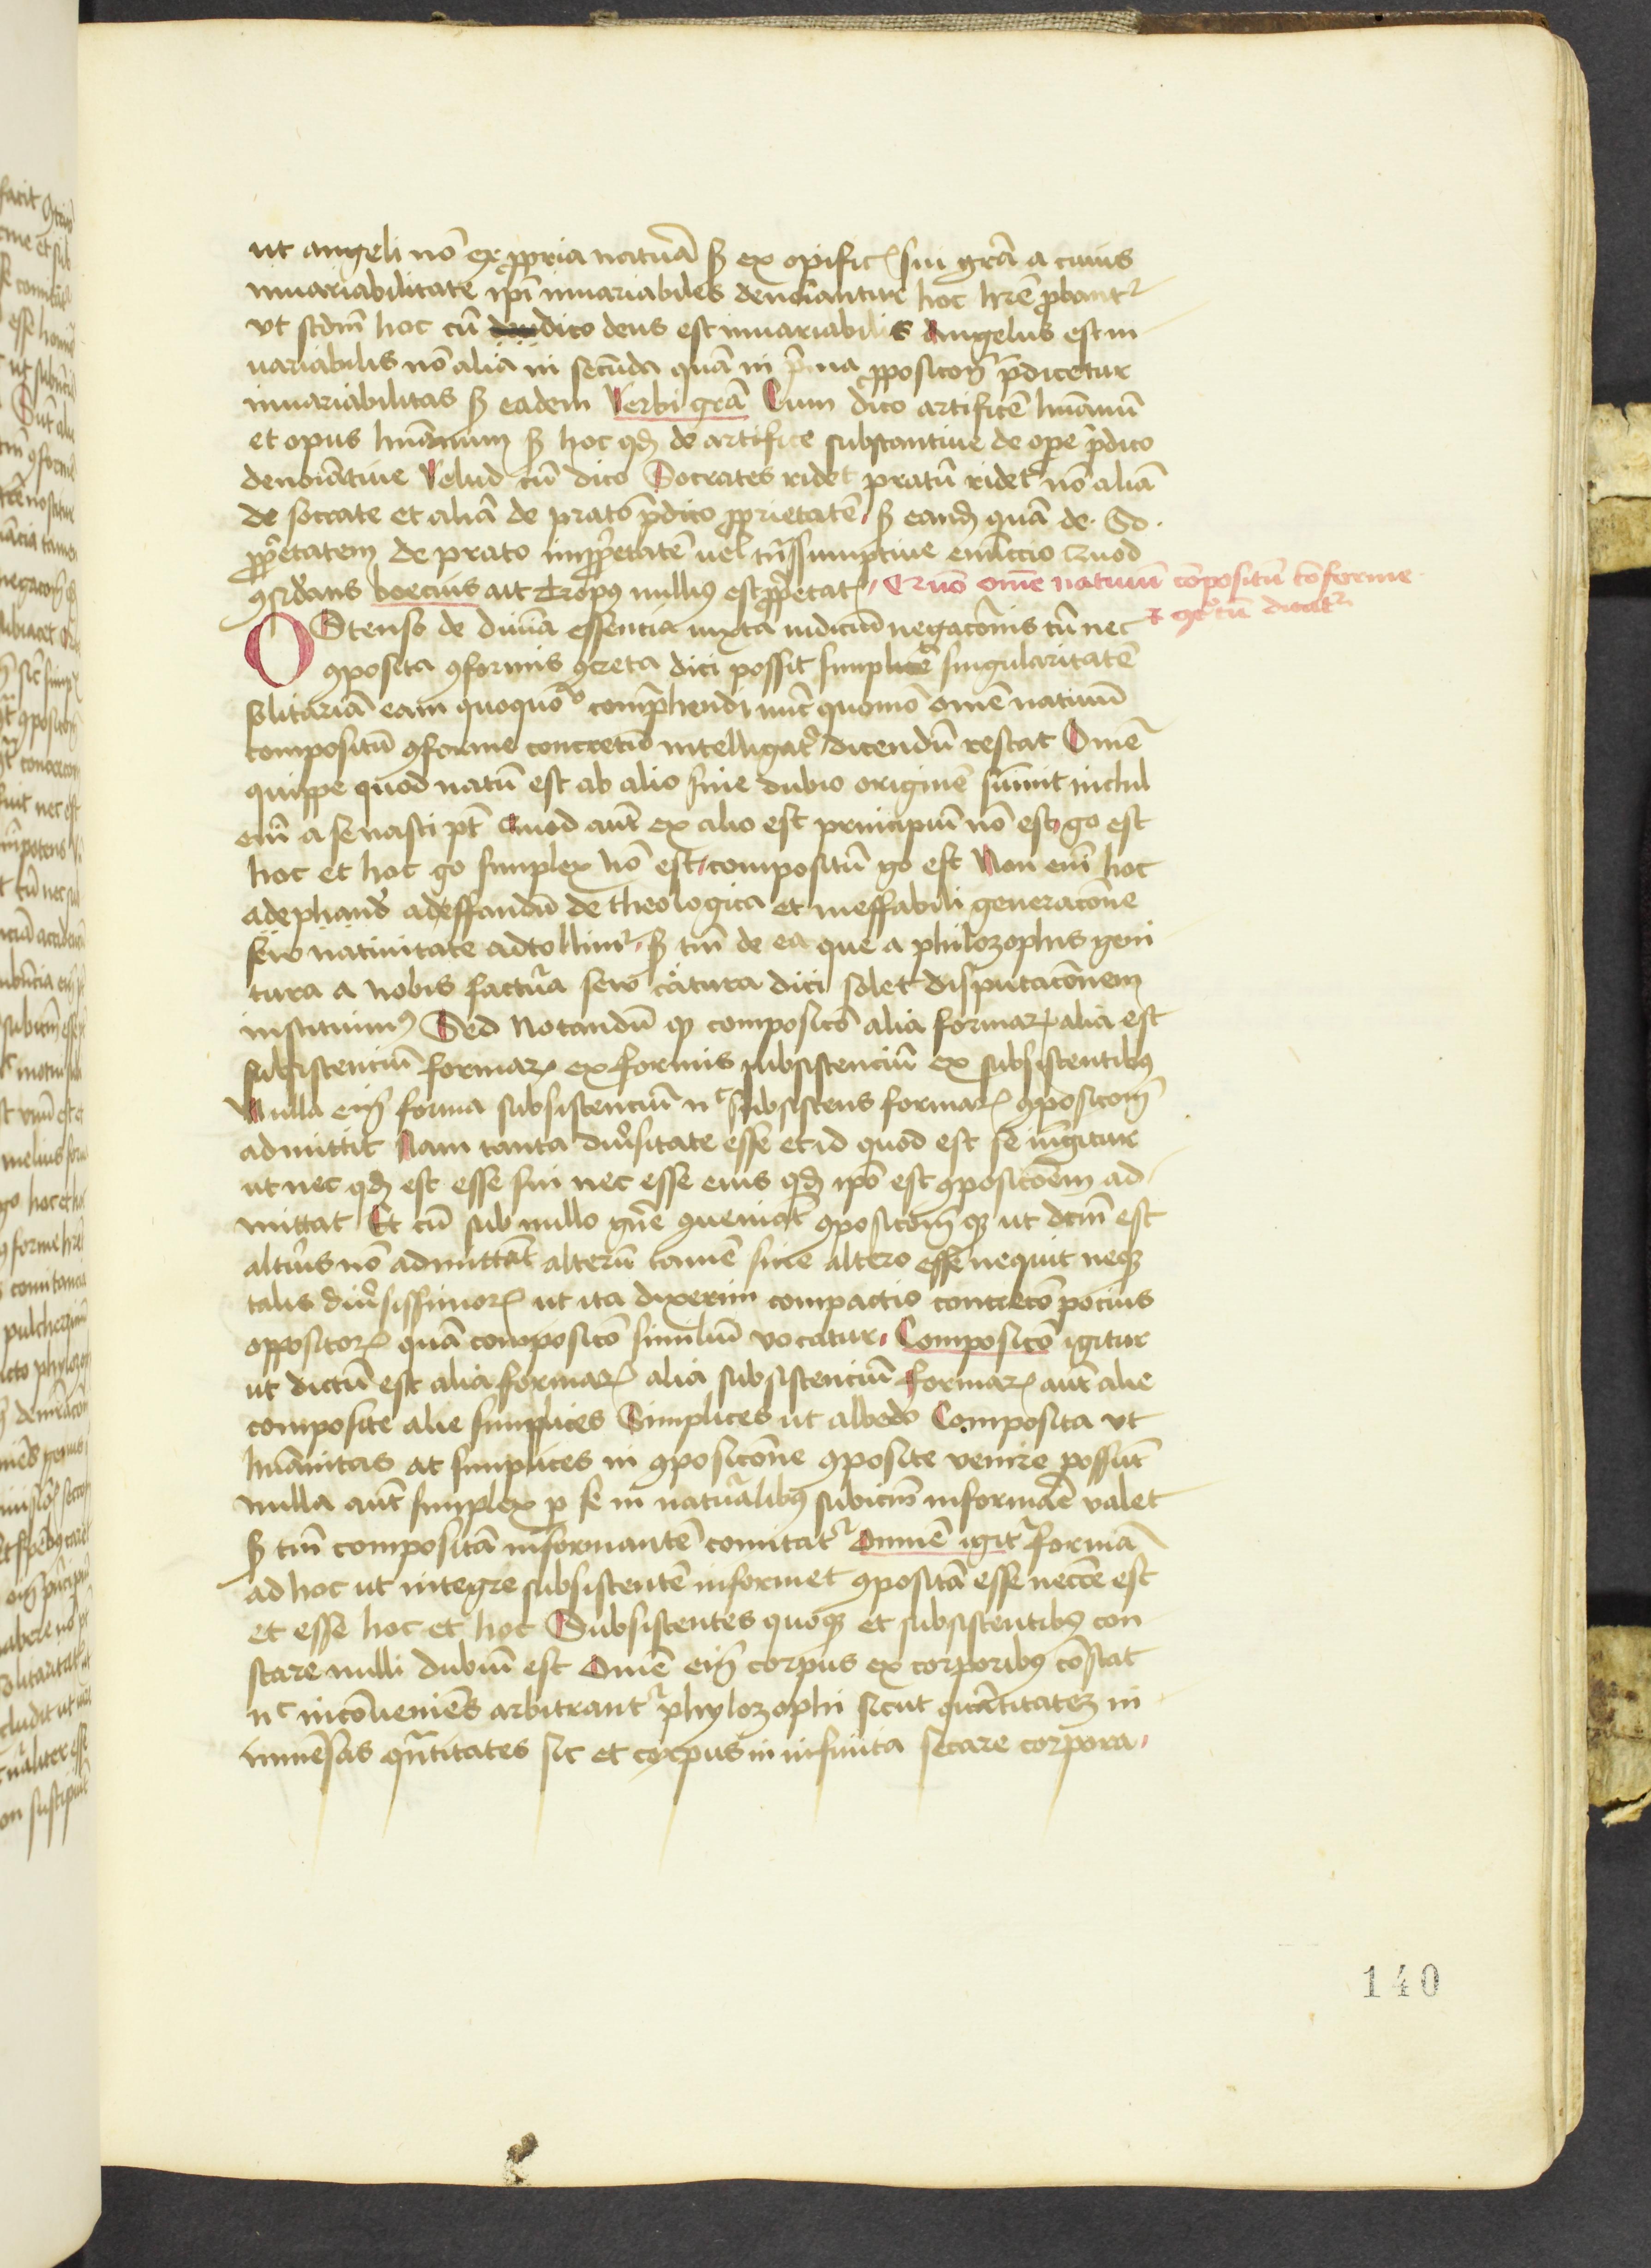 ut angeli nō ex ꝓpria natura sꝫ ex opific̄ sui grā a cuius
inuariabilitate ipī inuariabiles denoīantur hoc hr̄e ꝓbantᷣ
vt scdm̄ hoc cū dico deus est inuariabilis Angelus est in
uariabilis nō alia in secūda quā in p̄ma ꝓposicōe p̄dicetur
inuariabilitas sꝫ eadem Verbi grā Cum dico artificē humanū
et opus humanum sꝫ hoc qd̄ de artifice substantiue de ope p̄dico
denoīatiue Velud cū dico Socrates ridet pratū ridet nō aliā
de socrate et aliā de prato p̄dico ꝓprietatē sꝫ eandē quā de So.
ꝓprietatem de prato imꝓprietatē uel tn̄ssumptiue enūccio Quod
ꝯsid̓ans boecius ait Tropꝰ nulliꝰ est ꝓprietatꝭ Quō om̄e natiuū cōpositū cōforme
⁊ ꝯcretū dicatᷣ
OStenso de diuina essencia iuxta iudiciū negacōnis cū nec
ꝯposita ꝯformis ꝯcreta dici possit simplicē singularitatē
solitariā eam quoquō comp̄hendi nūc quomō om̄e natiuū
compositū ꝯforme concretū intelligatᷣ dicendū restat Om̄e
quippe quod natū est ab alio sine dubio originē sumit nichil
enī a se nasci pt̄ Quod aut̄ ex alio est principiū nō est go est
hoc et hoc go simplex nō est compositū go est Non enī hoc
ad ephand̄ ad effandū de theologica et ineffabili generacōne
seu natiuitate adtollimᷣ sꝫ tm̄ de ea que a philozophis geni
tura a nobis factura seu c̓atura dici solet disputacōnem
instituimꝰ Sed Notandū ꝙ composicō alia formaꝝ alia est
subsistenciū formaꝝ ex formis subsistenciū ex subsistentibꝰ
Nulla enī forma subsistenciū nᶜ subsistens formaꝝ ꝯposicōem
admittit Nam tanta diu̓sitate esse et id quod est se iūgitur
ut nec qd̄ est esse sui nec esse eius qd̄ ipō est ꝯposicōem ad
mittat Et cū sub nullo gn̄e ꝯueniāt ꝯposicōem qꝫ ut dcm̄ est
altu̓ius nō admittāt alterū tamē sine altero esse nequit neqꝫ
talis diu̓sissimoꝝ ut ita dixerim compactio concrecō pocius
oppositoꝝ quā composicō similiū vocatur Composicō igitur
ut dictū est alia formaꝝ alia subsistenciū Formaꝝ aut̄ alie
composite alie simplices Simplices ut albedo Composita vt
humanitas at simplices in ꝯposicōne ꝯposite venire possūt
nulla aut̄ simplex ꝑ se in naturalibꝰ subiectū informare valet
sꝫ tm̄ compositā informantē comitatᷣ Omnē igitᷣ formā
ad hoc ut integre subsistentē informet ꝯpositā esse necc̄e est
et esse hoc et hoc Subsistentes quoqꝫ et subsistentibꝰ con
stare nulli dubiū est Om̄e enī corpus ex corporibꝰ cōstat
nᶜ incōueniens arbitrantᷣ phylozophi sicut quātitatē in
inmēsas quātitates sic et corpus in infinita secare corpora
140